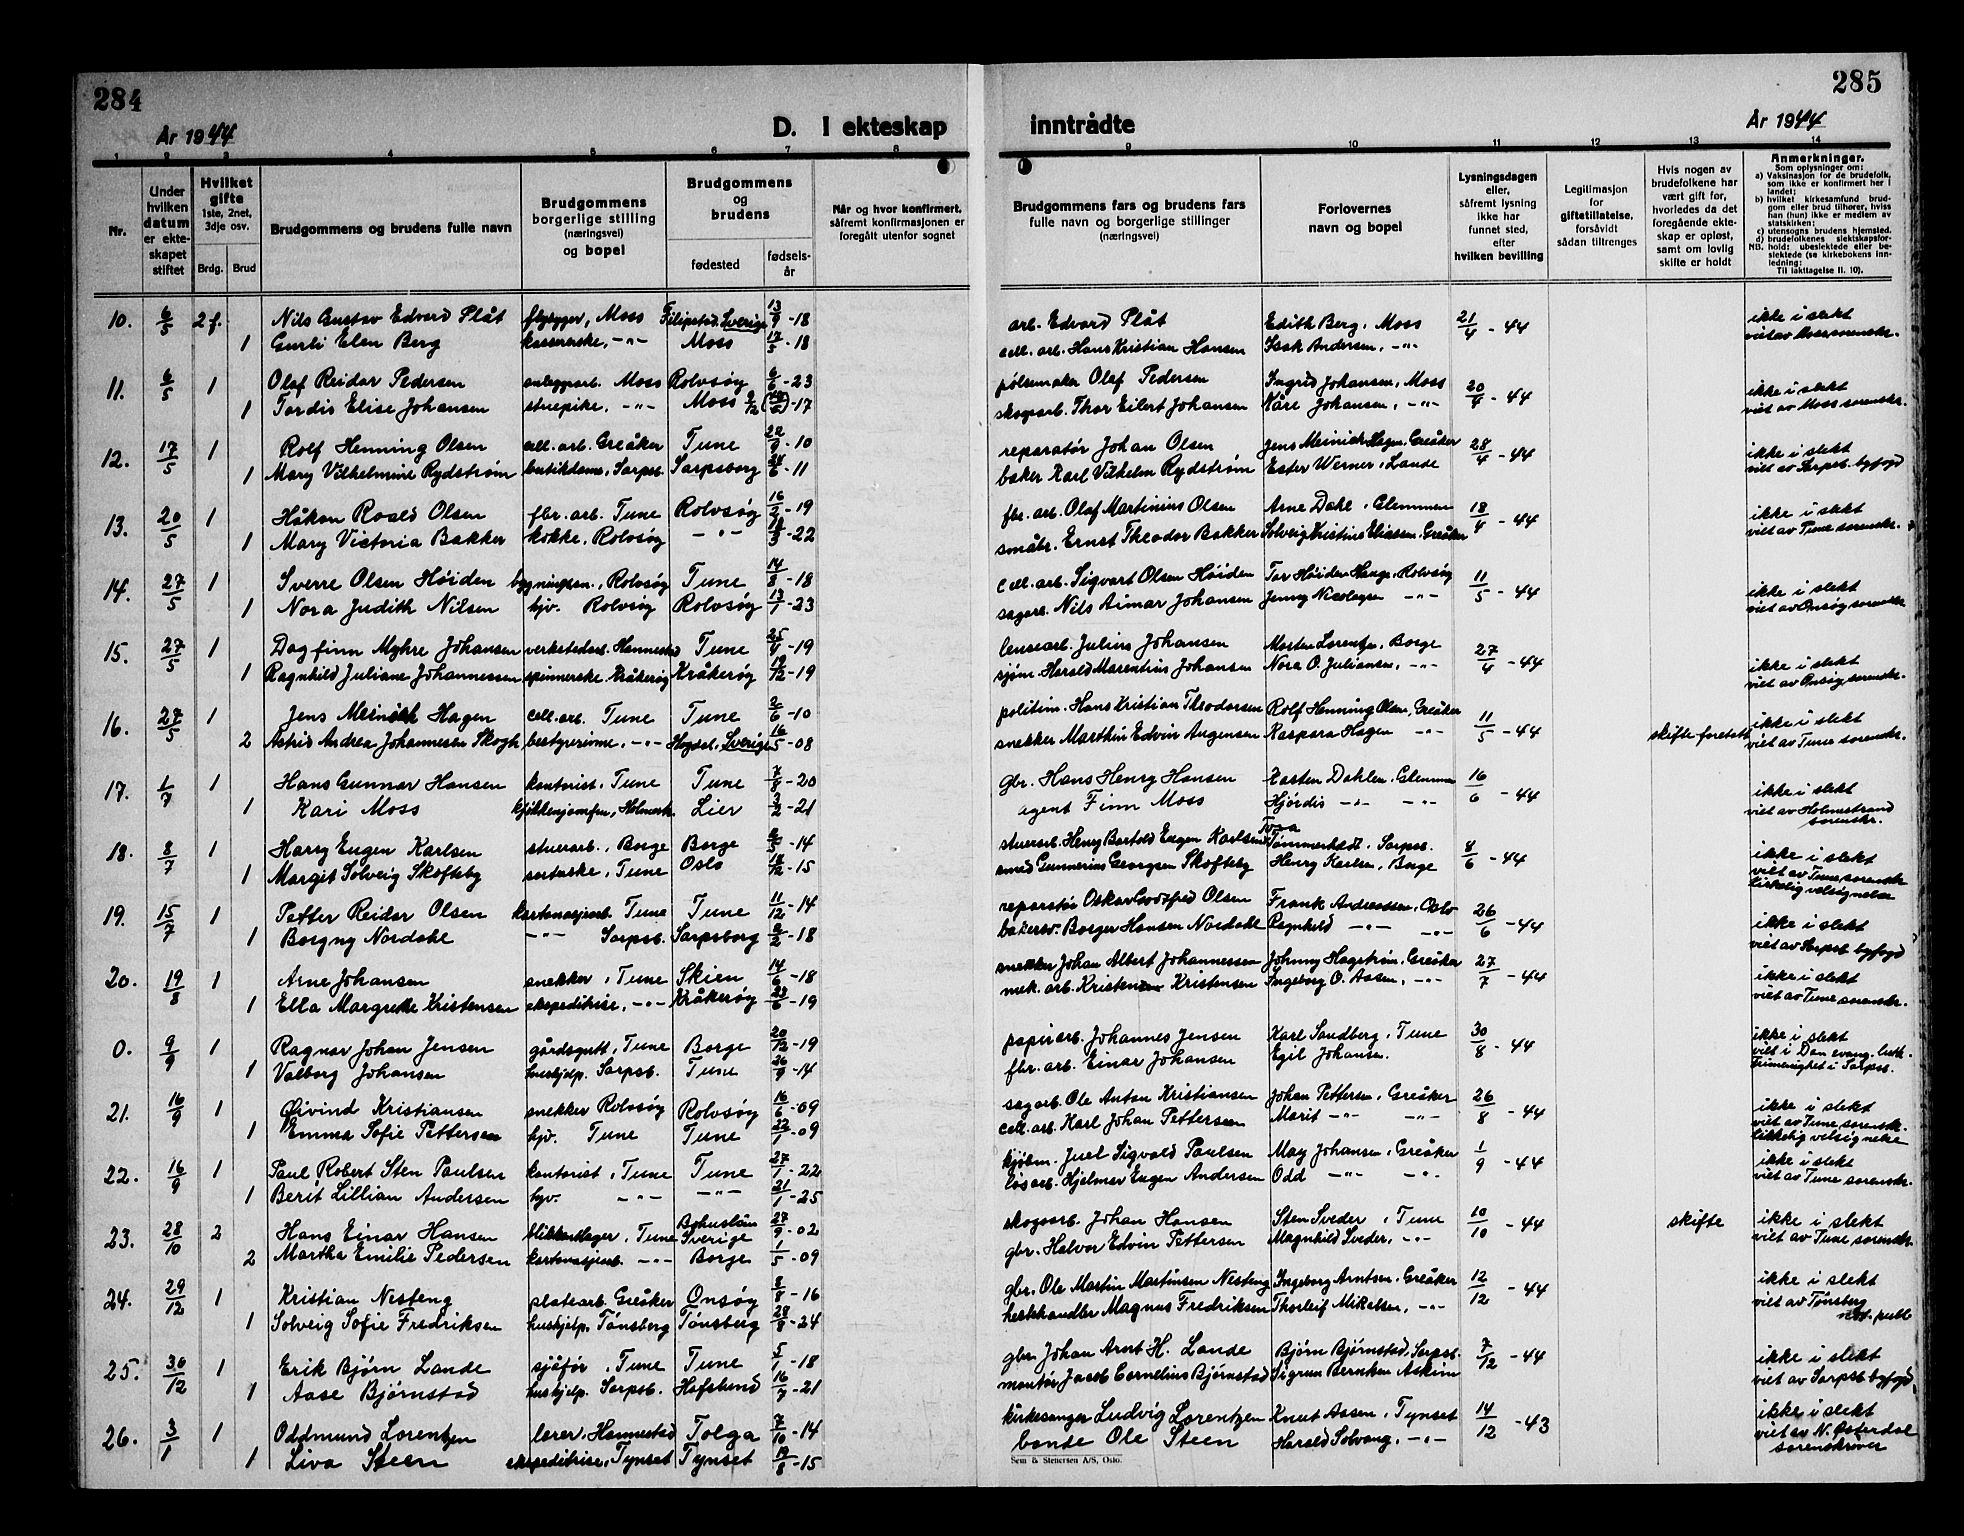 284
År 1944
D. I ekteskap
inntrådte
285
År 1944
1 2 3 4 5 6 7 8 9 10 11 12 13 14
Nr.
Under hvilken datum er ekteskapet stiftet
Hvilket gifte 1ste, 2net, 3dje osv.
Brdg. Brud
Brudgommens og brudens fulle navn
Brudgommens borgerlige stilling (næringsvei) og bopel
Brudgommens og brudens
fødested
fødselsår
Når og hvor konfirmert, såfremt konfirmasjonen er foregått utenfor sognet
Brudgommens fars og brudens fars fulle navn og borgerlige stillinger (næringsvei)
Forlovernes navn og bopel
Lysningsdagen eller, såfremt lysning ikke har funnet sted, efter hvilken bevilling
Legitimasjon for giftetillatelse, forsåvidt sådan tiltrenges
Hvis nogen av brudefolkene har vært gift før, hvorledes da det foregående ekteskap er opløst, samt om lovlig skifte er holdt
Anmerkninger.
Som oplysninger om:
a) Vaksinasjon for de brudefolk, som ikke er konfirmert her i landet;
b) hvilket kirkesamfund brudgom eller brud tilhører, hviss han (hun) ikke er medlem av statskirken;
c) utensogns brudens hjemsted.
d) brudefolkenes slektskapsforhold: ubeslektede eller beslektede (se kirkebokens innledning;
NB. Til iakttagelse II. 10).
10. 6/5 2f. Nils Gustav Edvard Plåt flybygger, Moss Filipstad, Sverige 13/9 - 18 arb. Edvard Plåt Edith Berg, Moss 21/4 - 44 ikke i slekt
1 Gurli Elen Berg kassererske, -"- Moss 17/5 - 18 cell. arb. Hans Kristian Hansen Isak Andersen, -"- viet av Moss sorenskr.
11. 6/5 1 Olaf Reidar Pedersen anleggsarb. Moss Rolvsøy 6/6 - 23 pølsemaker Olaf Pedersen Ingrid Johansen, Moss 20/4 - 44 ikke i slekt
1 Tordis Elise Johansen stuepike, -"- Moss - 17 skogsarb. Thor Eilert Johansen Kåre Johansen, -"- viet av Moss sorenskr.
12. 17/5 1 Rolf Henning Olsen cell. arb. Greåker Tune 22/9 - 10 reparatør Johan Olsen Jens Meinich Hagen, Greåker 28/4 - 44 ikke i slekt
1 Mary Vilhelmine Rydstrøm butikdame, Sarpsb. Sarpsborg 24/6 - 11 baker Karl Vilhelm Rydstrøm Ester Werner, Lande viet av Sarpsb. byfogd
13. 20/5 1 Håkon Roald Olsen fbr. arb. Tune Rolvsøy 16/2 - 19 fbr. arb. Olaf Martinius Olsen Arne Dahl, Glemmen 18/4 - 44 ikke i slekt
1 Mary Victoria Bakker kokke, Rolvsøy -"- - 22 småbr. Ernst Theodor Bakker Solveig Kristine Eliassen, Greåker viet av Tune sorenskr.
14. 27/5 1 Sverre Olsen Høiden bygningssn., Rolvsøy Tune 14/8 - 18 cell. arb. Sigvart Olsen Høiden Tor Høiden Hauge, Rolvsøy 11/5 - 44 ikke i slekt
1 Nora Judith Nilsen hjv. Rolvsøy Rolvsøy 13/1 - 23 sagarb. Nils Aimar Johansen Jenny Nicolaysen -"- viet av Onsøy sorenskr.
15. 27/5 1 Dagfinn Myhre Johansen verkstedarb. Hannestad Tune 25/4 - 19 lensearb. Julius Johansen Morten Lorentzen, Borge 27/4 - 44 ikke i slekt
1 Ragnhild Juliane Johannessen spinnerske, Kråkerøy Kråkerøy 19/12 - 19 sjøm. Harald Marentius Johansen Nora O. Juliansen, -"- viet av Onsøy sorenskr.
16. 27/5 1 Jens Meinich Hagen cell. arb. Tune Tune 2/6 - 10 politim. Hans Kristian Theodorsen Rolf Henning Olsen, Greåker 11/5 - 44 ikke i slekt
2 Astrid Andrea Johannesen Skogh bestyrerinne, -"- Hogdal, Sverige 16/5 - 08 snekker Marthin Edvin Augensen Kaspara Hagen -"- skifte foretatt viet av Tune sorenskr.
17. 1/7 1 Hans Gunnar Hansen kontorist, Tune Tune 7/8 - 20 gbr. Hans Henry Hansen Karsten Dahlen, Glemmen 16/6 - 44 ikke i slekt
1 Kari Moss kjøkkenjomfru, Holmestr. Lier 3/2 - 21 agent Finn Moss Hjørdis -"- -"- viet av Holmestrand sorenskr.
18. 8/7 1 Harry Eugen Karlsen stuerarb., Borge Borge 2/5 - 14 stuerarb. Henry Bartold Eugen Karlsen Tora Tømmerholdt, Sarpsb. 8/6 - 44 ikke i slekt
1 Margit Solveig Skofteby sorterske, Tune Oslo 18/12 - 15 smed Gunnerius Georgsen Skofteby Henry Karlsen, Borge viet av Tune sorenskr. kirkelig velsignelse
19. 15/7 1 Petter Reidar Olsen kartonasjearb. Tune Tune 11/12 - 14 reparatør Oskar Godtfred Olsen Frank Andreassen, Oslo 26/6 - 44 ikke i slekt
1 Borgny Nordahl -"- Sarpsb. Sarpsborg 2/2 - 18 bakersv. Borger Hansen Nordahl Ragnhild -"- -"- viet av Sarpsb. byfogd
20. 19/8 1 Arne Johansen snekker, Tune Skien 14/6 - 18 snekker Johan Albert Johannessen Johnny Hagstrøm, Greåker 27/7 - 44 ikke i slekt
1 Ella Margrethe Kristensen ekspeditrise, -"- Kråkerøy 23/6 - 19 mek. arb. Kristensen Kristensen Ingeborg O. Aasen, -"- viet av Tune sorenskr.
0. 9/9 1 Ragnar Johan Jensen gårdsgutt, Tune Borge 20/12 - 19 papirarb. Johannes Jensen Karl Sandberg, Tune 30/8 - 44 ikke i slekt
1 Valborg Johansen hushjelp, Sarpsb. Tune 26/9 - 14 fbr. arb. Einar Johansen Egil Johansen. viet i Den evang. luth. Frimenighet i Sarpsb.
21. 16/9 1 Øivind Kristiansen snekker Rolvsøy Rolvsøy 16/6 - 09 sagarb. Ole Anton Kristiansen Johan Pettersen, Greåker 26/8 - 44 ikke i slekt
1 Emma Sofie Pettersen hjv. Tune Tune 22/1 - 09 cell. arb. Karl Johan Pettersen Marit -"- -"- viet av Tune sorenskr. kirkelig velsignelse
22. 16/9 1 Paul Robert Sten Paulsen kontorist, Tune Tune 27/1 - 22 kjøbm. Juel Sigvald Paulsen May Johansen, Greåker 1/9 - 44 ikke i slekt
1 Berit Lillian Andersen hjv. -"- -"- 21/1 - 25 løsarb. Hjelmar Eugen Andersen Odd -"- -"- viet av Tune sorenskr.
23. 28/10 2 Hans Einar Hansen blikkenslager, Tune Bohuslän Sverige 27/9 - 02 skogsarb. Johan Hansen Sten Sveder, Tune 10/10 - 44 skifte ikke i slekt
2 Martha Emilie Pedersen kartonasjearb. -"- Borge 1/5 - 09 gbr. Halvor Edvin Pettersen Magnhild Sveder, -"- viet av Tune sorenskr.
24. 29/12 1 Kristian Nesteng platearb. Greåker Onsøy 8/8 - 16 gbr. Ole Martin Martinsen Nesteng Ingeborg Arntsen, Greåker 12/12 - 44 ikke i slekt
1 Solveig Sofie Fredriksen hushjelp, Tønsberg Tønsberg 28/8 - 24 hestehandler Magnus Fredriksen Thorleif Mikalsen, -"- viet av Tønsberg not. publ
25. 30/12 1 Erik Bjørn Lande sjåfør, Tune Tune 5/1 - 18 gbr. Johan Arnt H. Lande Bjørn Bjørnstad, Sarpsb. 7/12 - 44 ikke i slekt
1 Aase Bjørnstad hushjelp, Sarpsb. Hafslund 16/7 - 21 montør Jacob Cornelius Bjørnstad Sigrun Berntsen Askim viet av Sarpsb byfogd
26. 3/1 1 Oddmund Lorentzen lærer, Hannestad Tolga 7/10 - 14 kirkesanger Ludvig Lorentzen Knut Aasen, Tynset 14/12 - 43 ikke i slekt
1 Liva Steen ekspeditrise, Tynset Tynset 19/8 - 15 bonde Ole Steen Harald Solvang, -"- viet av N. Østerdal sorenskriver
Sem & Stenersen A/S, Oslo.